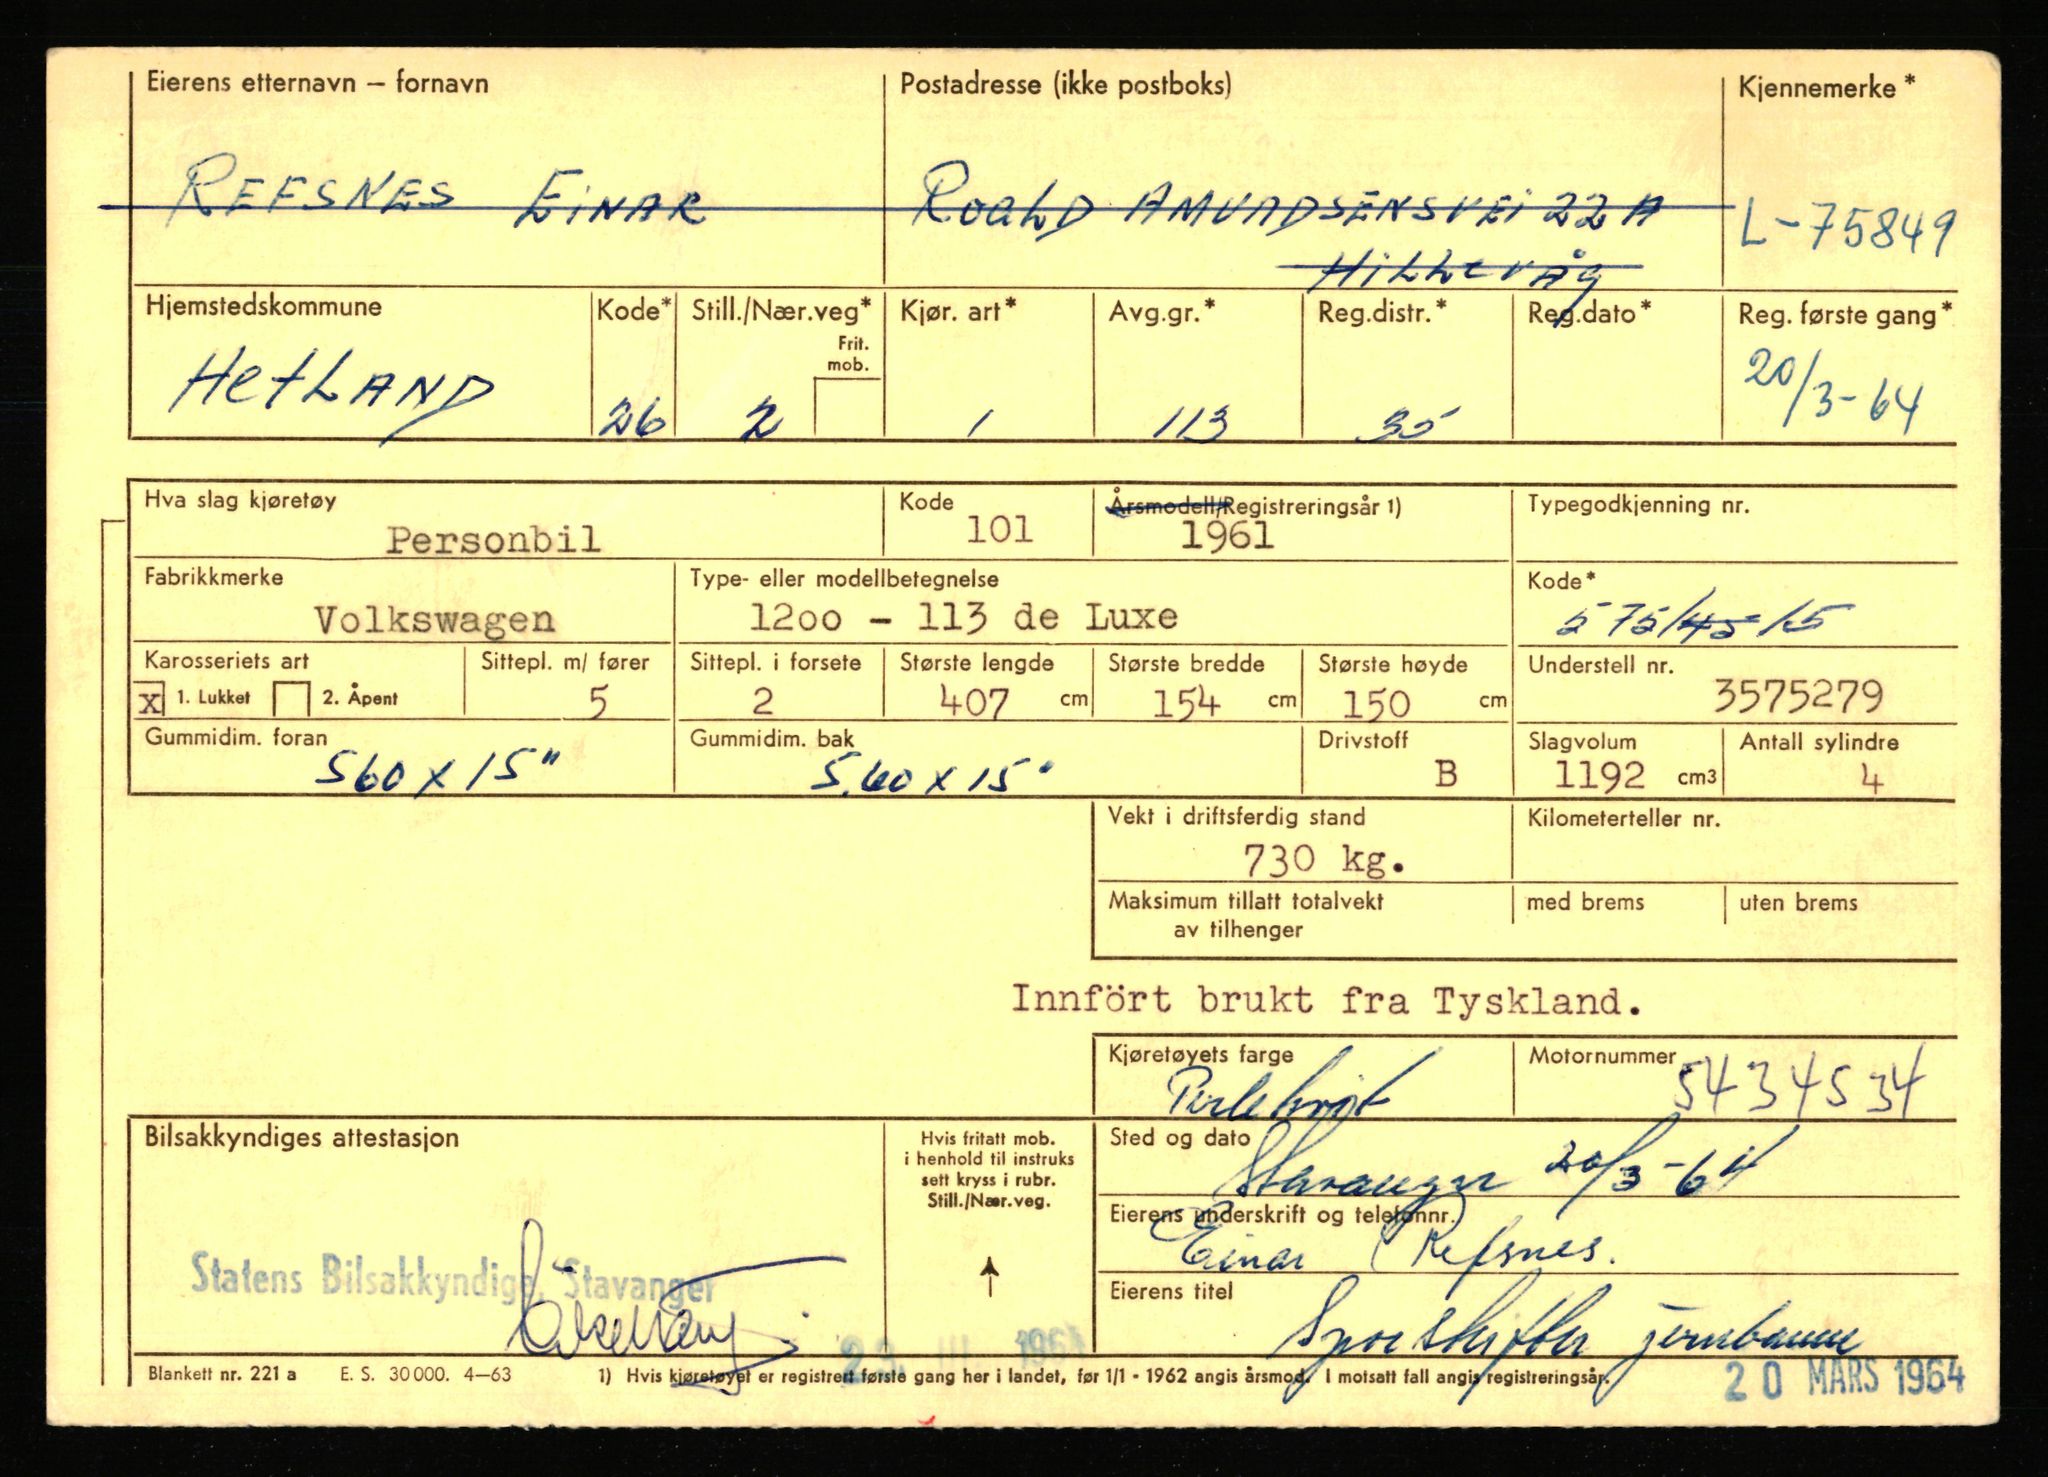 Eierens etternavn – fornavn
Postadresse (ikke postboks)
Kjennemerke*
REFSNES EINAR
ROALD AMUNDSENSVEI 22 A
HILLEVÅG
L-75849
Hjemstedskommune
Kode*
Still./Nær.veg*
Frit. mob.
Kjør. art*
Avg.gr.*
Reg.distr.*
Reg.dato*
Reg. første gang*
HetLAND
26
2
1
113
35
20/3-64
Hva slag kjøretøy
Kode
Årsmodell/Registreringsår 1)
Typegodkjenning nr.
Personbil
101
1961
Fabrikkmerke
Type- eller modellbetegnelse
Kode*
Volkswagen
12oo - 113 de Luxe
575/45/15
Karosseriets art
Sittepl. m/ fører
Sittepl. i forsete
Største lengde
Største bredde
Største høyde
Understell nr.
X 1. Lukket
2. Åpent
5
2
407 cm
154 cm
150 cm
3575279
Gummidim. foran
Gummidim. bak
Drivstoff
Slagvolum
Antall sylindre
560 x 15"
5.60 x 15"
B
1192 cm3
4
Vekt i driftsferdig stand
Kilometerteller nr.
730 kg.
Maksimum tillatt totalvekt
av tilhenger
med brems
uten brems
Innfört brukt fra Tyskland.
Kjøretøyets farge
Motornummer
Perlehvit
5434534
Bilsakkyndiges attestasjon
Hvis fritatt mob.
i henhold til instruks
sett kryss i rubr.
Still./Nær.veg.
Sted og dato
Stavanger 20/3-64
Eierens underskrift og telefonnr.
Einar Refsnes.
Statens Bilsakkyndige, Stavanger
Eierens titel
Sporskifter jernbane
23. III. 1964
Blankett nr. 221 a E. S. 30 000. 4–63
1) Hvis kjøretøyet er registrert første gang her i landet, før 1/1 - 1962 angis årsmod. I motsatt fall angis registreringsår.
20 MARS 1964